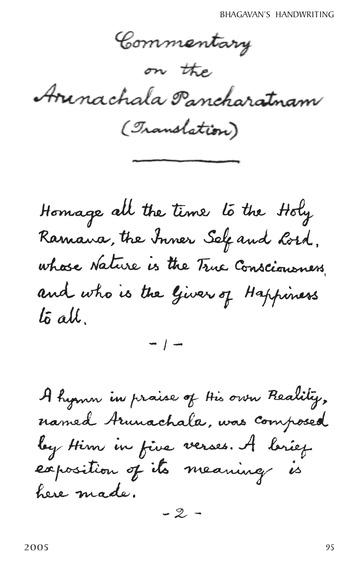 BHAGAVAN'S HANDWRITING
Commentary
on the
Arunachala Pancharatnam
(Translation)
Homage all the time to the Holy
Ramana, the Inner Self and Lord,
whose Nature is the True Consciousness,
and who is the Giver of Happiness
to all.
- 1 -
A hymn in praise of His own Reality,
named Arunachala, was composed
by Him in five verses. A brief
exposition of its meaning is
here made.
- 2 -
2005 95